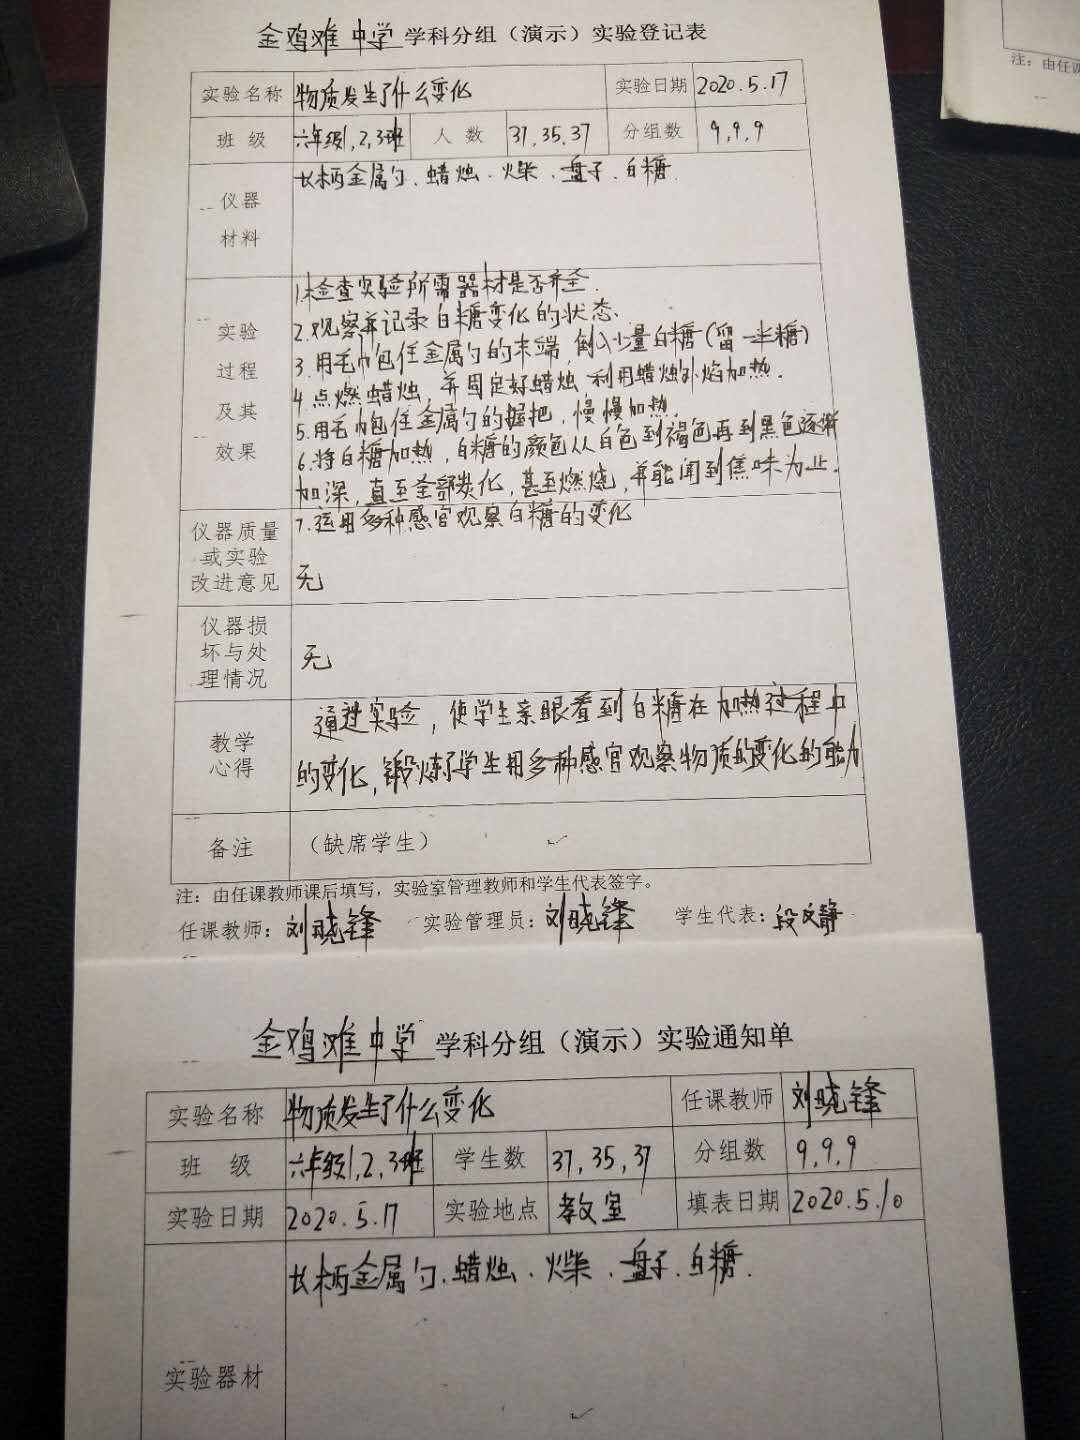 金鸡滩中学学科分组（演示）实验登记表
实验名称 物质发生了什么变化 实验日期 2020.5.17
班级 六年级1,2,3班 人数 37,35,37 分组数 9,9,9
仪器材料 长柄金属勺、蜡烛、火柴、盘子、白糖.
实验过程及其效果
1.检查实验所需器材是否齐全.
2.观察并记录白糖变化的状态.
3.用毛巾包住金属勺的末端,倒入少量白糖(留一半糖)
4.点燃蜡烛,并固定好蜡烛,利用蜡烛外焰加热.
5.用毛巾包住金属勺的握把,慢慢加热.
6.将白糖加热,白糖的颜色从白色到褐色再到黑色逐渐
加深,直至全部炭化,甚至燃烧,并能闻到焦味为止.
7.运用多种感官观察白糖的变化
仪器质量或实验改进意见 无
仪器损坏与处理情况 无
教学心得
通过实验,使学生亲眼看到白糖在加热过程中
的变化,锻炼了学生用多种感官观察物质的变化的能力
备注 （缺席学生）
注：由任课教师课后填写，实验室管理教师和学生代表签字。
任课教师：刘晓锋 实验管理员：刘晓锋 学生代表：段文静
注：由任课
金鸡滩中学学科分组（演示）实验通知单
实验名称 物质发生了什么变化 任课教师 刘晓锋
班级 六年级1,2,3班 学生数 37,35,37 分组数 9,9,9
实验日期 2020.5.17 实验地点 教室 填表日期 2020.5.10
实验器材 长柄金属勺、蜡烛、火柴、盘子、白糖.